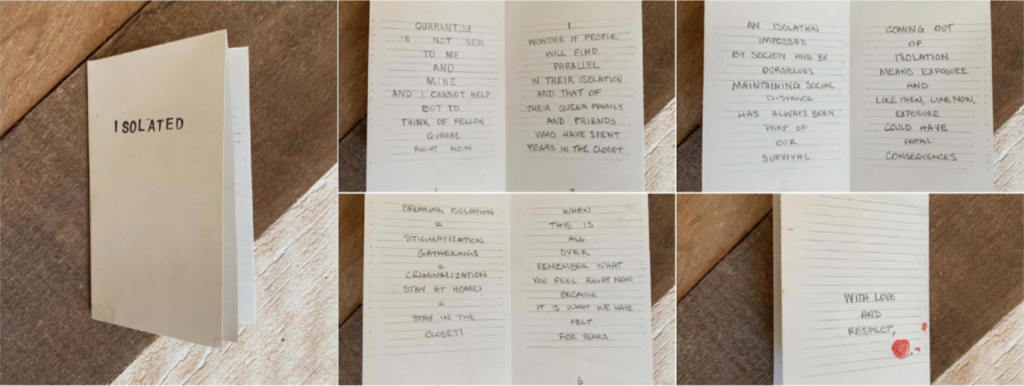 ISOLATED
QUARANTINE
IS NOT NEW
TO ME
AND
MINE
AND I CANNOT HELP
BUT TO
THINK OF FELLOW
QUEERS
RIGHT NOW
I
WONDER IF PEOPLE
WILL FIND
PARALLEL
IN THEIR ISOLATION
AND THAT OF
THEIR QUEER FAMILY
AND FRIENDS
WHO HAVE SPENT
YEARS IN THE CLOSET
AN ISOLATION
IMPOSED
BY SOCIETY AND BY
OURSELVES
MAINTAINING SOCIAL
DISTANCE
HAS ALWAYS BEEN
PART OF
OUR
SURVIVAL
COMING OUT
OF
ISOLATION
MEANS EXPOSURE
AND
LIKE THEN, LIKE NOW,
EXPOSURE
COULD HAVE
FATAL
CONSEQUENCES
BREAKING ISOLATION
=
STIGMATIZATION
GATHERINGS
=
CRIMINALIZATION
STAY AT HOME!
=
STAY IN THE
CLOSET!
WHEN
THIS IS
ALL
OVER
REMEMBER WHAT
YOU FEEL RIGHT NOW
BECAUSE
IT IS WHAT WE HAVE
FELT
FOR YEARS.
6
WITH LOVE
AND
RESPECT,